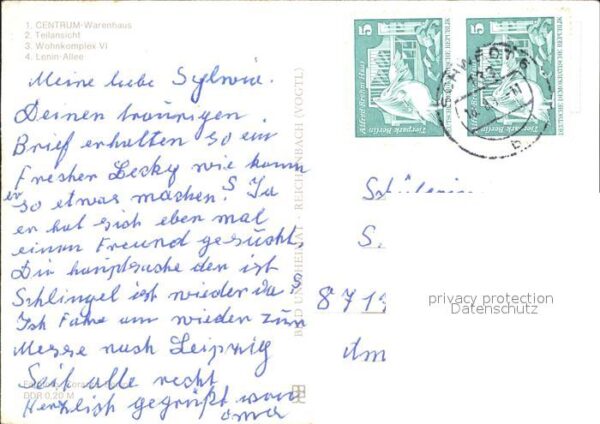 1. CENTRUM-Warenhaus
2. Teilansicht
3. Wohnkomplex VI
4. Lenin-Allee
Meine liebe Sylwia.
Deinen traurigen
Brief erhalten so ein
Frecher Lesky wie kann
er so etwas machen? Ja
er hat sich eben mal
einen Freund gesucht,
Die hauptsache der ist
Schlingel ist wieder da?
Ich Fahre am wieder zur
Messe nach Leipzig
Seit alle recht
Herzlich gegrüßt von
oma
DDR 0,20 M
BILD UND HEIMAT · REICHENBACH (VOGTL)
5
Alfred-Brehm-Haus
Tierpark Berlin
DEUTSCHE DEMOKRATISCHE REPUBLIK
5
Tierpark Berlin
DEUTSCHE DEMOKRATISCHE REPUBLIK
SCHWEDT
b
Schülerin
S.
8719
Am
privacy protection
Datenschutz